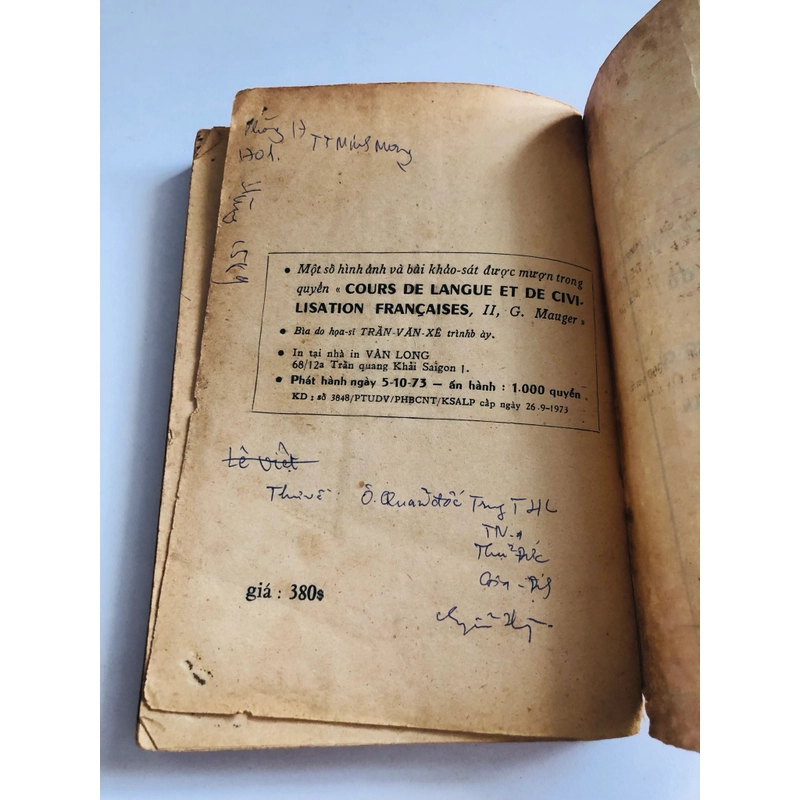 TT Minh Mạng
• Một số hình ảnh và bài khảo-sát được mượn trong
quyển « COURS DE LANGUE ET DE CIVI-
LISATION FRANÇAISES, II, G. Mauger »
• Bìa do họa-sĩ TRẦN-VĂN-XÊ trìnhb ày.
• In tại nhà in VÂN LONG
68/12a Trần quang Khải Saigon 1.
• Phát hành ngày 5-10-73 — ấn hành : 1.000 quyển.
KD : số 3848/PTUDV/PHBCNT/KSALP cấp ngày 26-9-1973
Lê Việt
Thư về : Ô. Quản đốc Trung T HL
TN.
Thủ Đức
giá : 380$